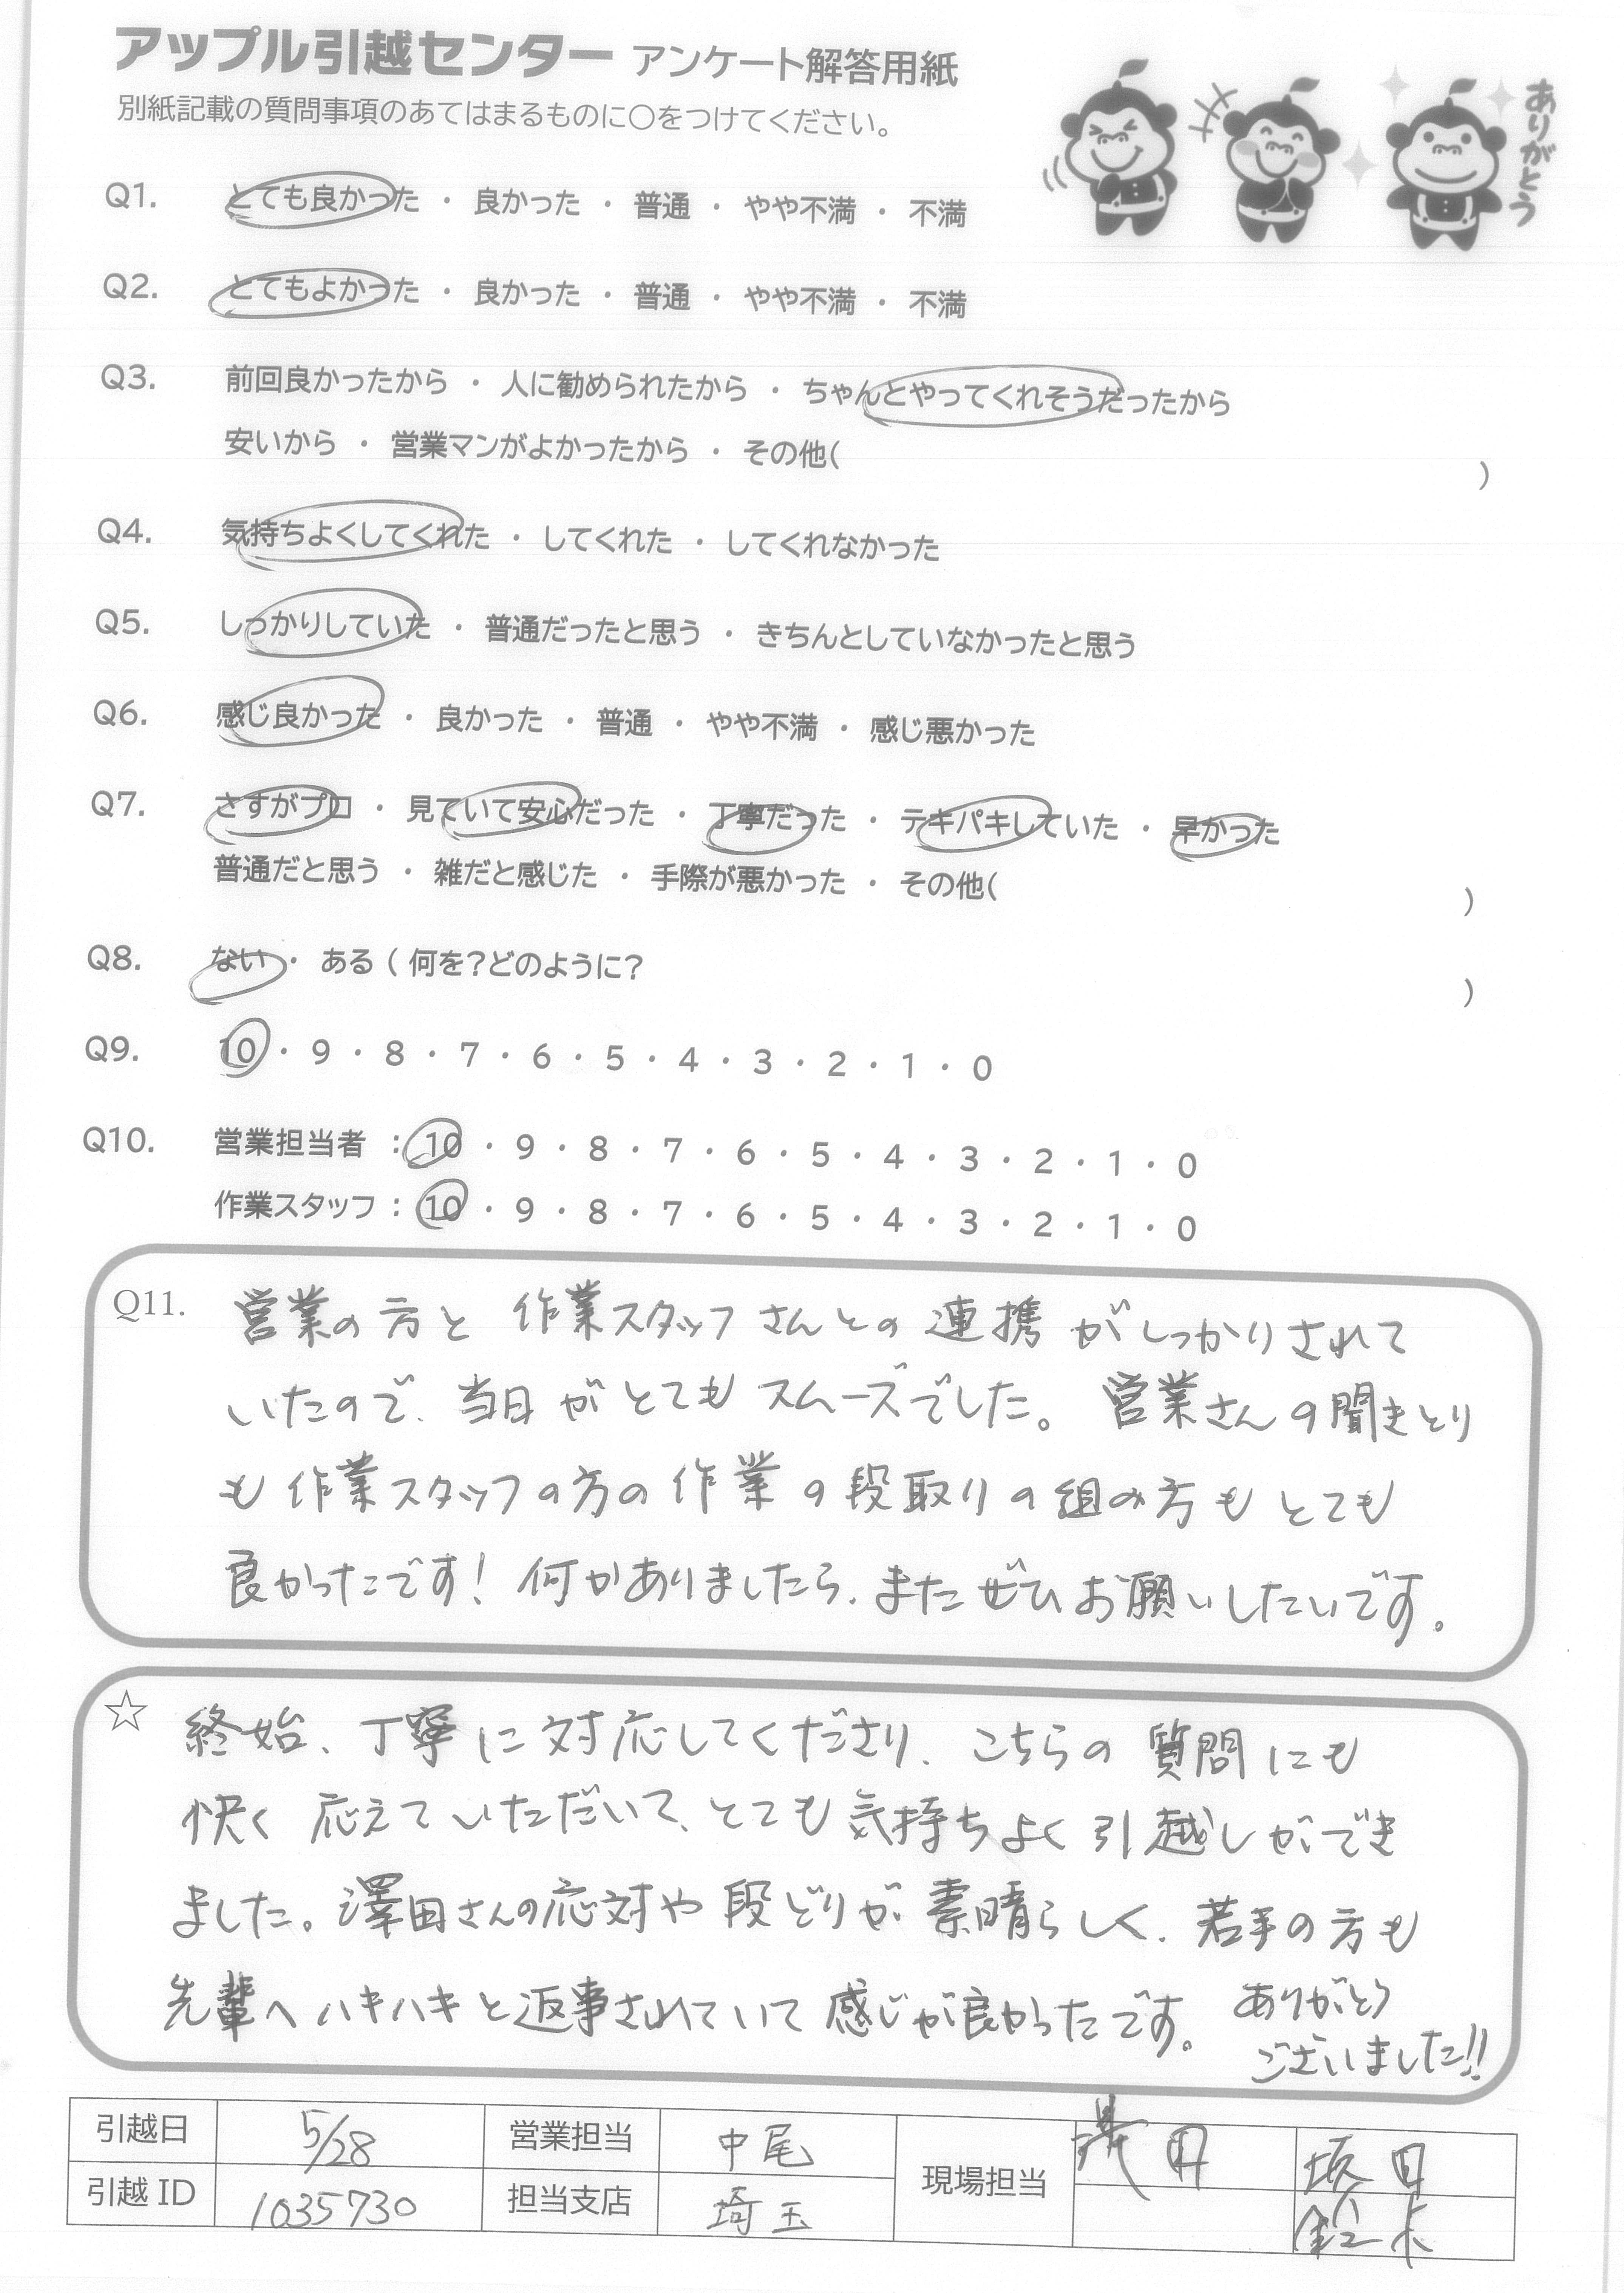 アップル引越センター アンケート解答用紙
別紙記載の質問事項のあてはまるものに○をつけてください。
ありがとう
Q1. とても良かった ・ 良かった ・ 普通 ・ やや不満 ・ 不満
Q2. とてもよかった ・ 良かった ・ 普通 ・ やや不満 ・ 不満
Q3. 前回良かったから ・ 人に勧められたから ・ ちゃんとやってくれそうだったから
安いから ・ 営業マンがよかったから ・ その他( )
Q4. 気持ちよくしてくれた ・ してくれた ・ してくれなかった
Q5. しっかりしていた ・ 普通だったと思う ・ きちんとしていなかったと思う
Q6. 感じ良かった ・ 良かった ・ 普通 ・ やや不満 ・ 感じ悪かった
Q7. さすがプロ ・ 見ていて安心だった ・ 丁寧だった ・ テキパキしていた ・ 早かった
普通だと思う ・ 雑だと感じた ・ 手際が悪かった ・ その他( )
Q8. ない ・ ある ( 何を?どのように? )
Q9. 10 ・ 9 ・ 8 ・ 7 ・ 6 ・ 5 ・ 4 ・ 3 ・ 2 ・ 1 ・ 0
Q10. 営業担当者 : 10 ・ 9 ・ 8 ・ 7 ・ 6 ・ 5 ・ 4 ・ 3 ・ 2 ・ 1 ・ 0
作業スタッフ : 10 ・ 9 ・ 8 ・ 7 ・ 6 ・ 5 ・ 4 ・ 3 ・ 2 ・ 1 ・ 0
Q11. 営業の方と 作業スタッフさんとの連携がしっかりされて
いたので、当日がとてもスムーズでした。営業さんの聞きとり
も作業スタッフの方の作業の段取りの組み方もとても
良かったです! 何かありましたら、またぜひお願いしたいです。
☆ 終始、丁寧に対応してくださり、こちらの質問にも
快く応えていただいて、とても気持ちよく引越しができ
ました。澤田さんの応対や段どりが素晴らしく、若手の方も
先輩へハキハキと返事されていて感じが良かったです。ありがとう
ございました!!
引越日 5/28 営業担当 中尾 現場担当 澤田 坂田
引越ID 1035730 担当支店 埼玉 鈴木